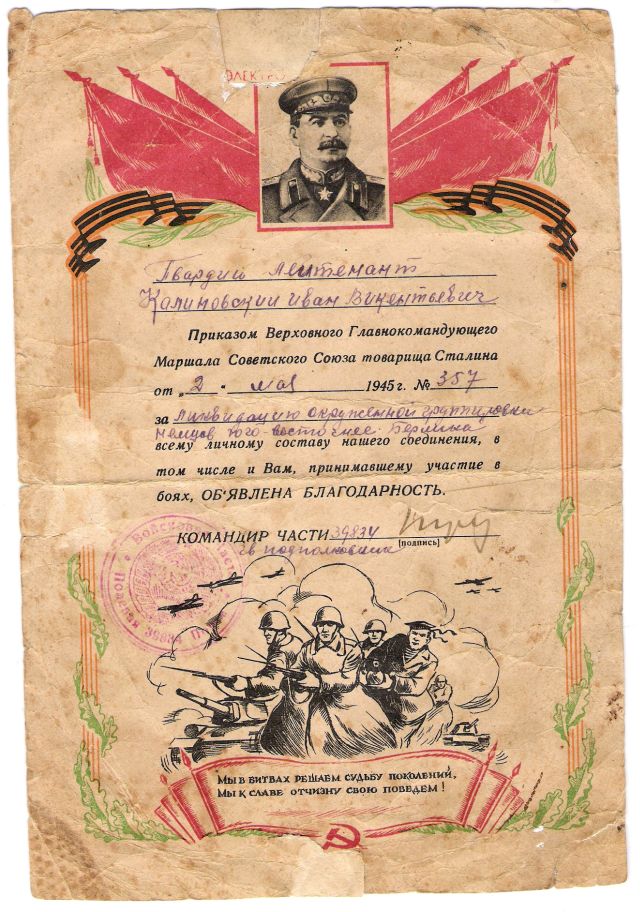 ЭЛЕКТРО
Гвардии Лейтенант
Калиновский Иван Викентьевич
Приказом Верховного Главнокомандующего
Маршала Советского Союза товарища Сталина
от „2" мая 1945 г. № 357
за ликвидацию окружённой группировки
немцев юго-восточнее Берлина
всему личному составу нашего соединения, в
том числе и Вам, принимавшему участие в
боях, ОБ'ЯВЛЕНА БЛАГОДАРНОСТЬ.
КОМАНДИР ЧАСТИ 39834
гв подполковник [подпись]
Войсковая часть
Полевая 39834
МЫ В БИТВАХ РЕШАЕМ СУДЬБУ ПОКОЛЕНИЙ,
МЫ К СЛАВЕ ОТЧИЗНУ СВОЮ ПОВЕДЕМ!